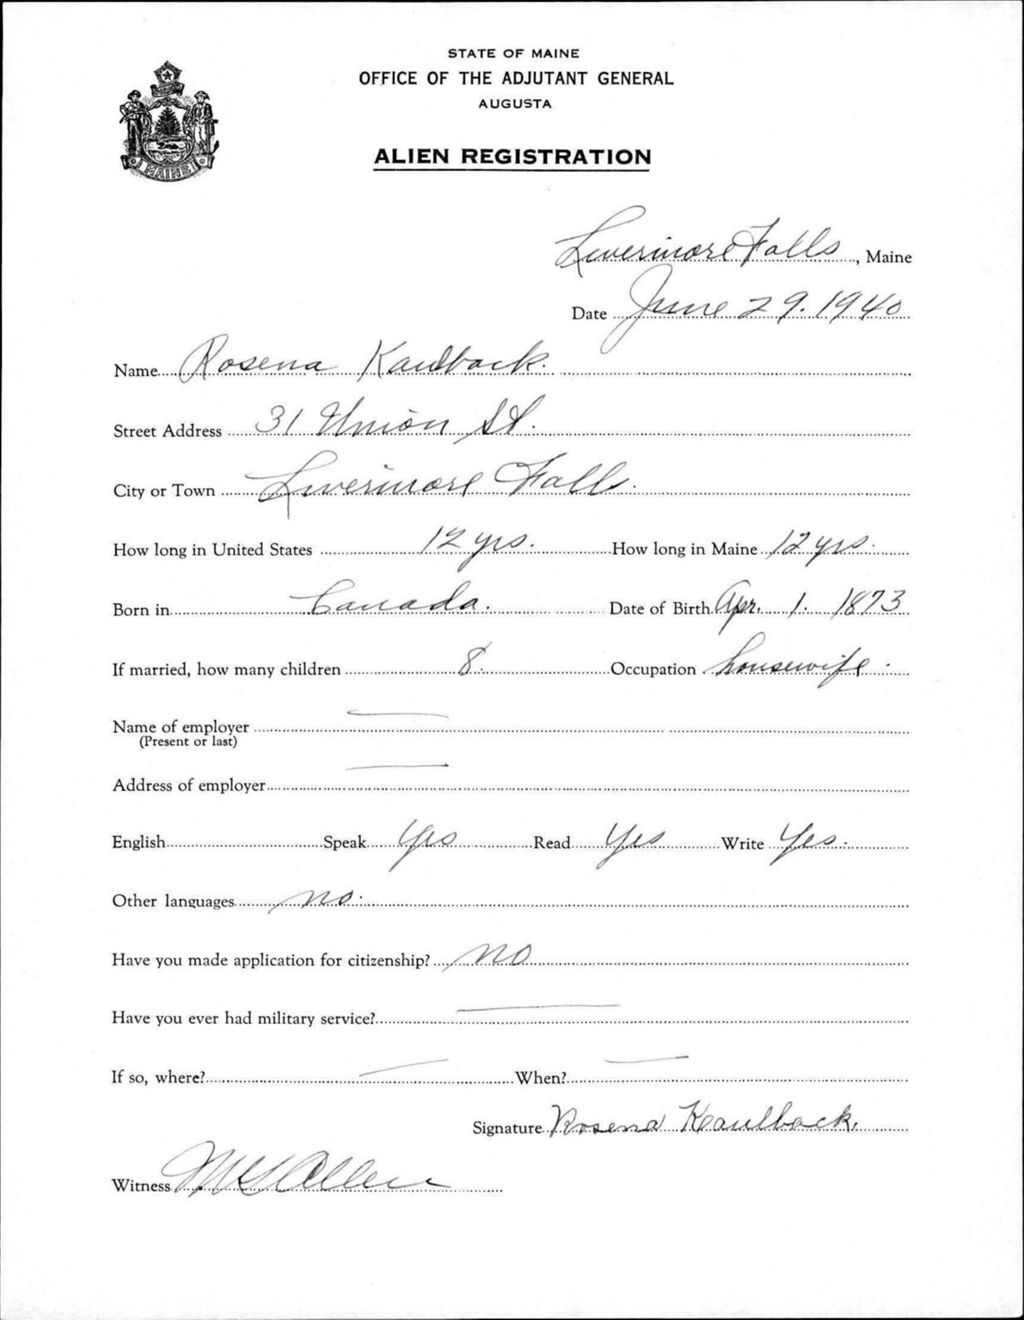 STATE OF MAINE
OFFICE OF THE ADJUTANT GENERAL
AUGUSTA
MAINE
ALIEN REGISTRATION
Livermore Falls, Maine
Date June 29. 1940
Name Rosena Kaulback.
Street Address 31 Union St.
City or Town Livermore Falls.
How long in United States 12 yrs. How long in Maine 12 yrs.
Born in Canada. Date of Birth Apr. 1. 1873
If married, how many children 8. Occupation housewife.
Name of employer
(Present or last)
Address of employer
English Speak Yes Read Yes Write Yes.
Other languages no.
Have you made application for citizenship? NO
Have you ever had military service?
If so, where? When?
Signature Rosena Kaulback.
Witness Allen